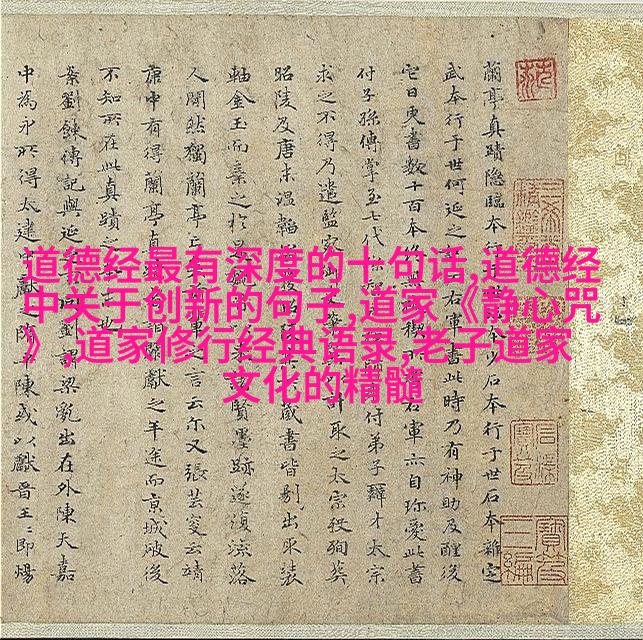 道德经最有深度的十句话,道德经
中关于创新的句子,道家《静心咒
》,道家修行经典语录,老子道家
文化的精髓
蘭亭真蹟隐臨本行于世 本少石本行于世石本雜定
武本行于世何延之 右軍書此時乃有神助及醒後
它日更書數十百本終無 右軍亦自珍愛此書
付子孫傳掌至七代 付弟子辯才太宗
求之不得乃遣監察 計取之太宗殁殉葵
昭陵及唐末温韜 藏書皆剔出取装
軸金玉而棄之於是 賢墨跡遂復流落
人間然獨蘭亭亡矣 之言云尔又張芸叟云靖
康中有得蘭亭真 獻之半途而京城破後
不知所在此真蹟之 也
案劉餗傳記與延 劉謂梁亂出在外陳天嘉
中為永所得太建中獻之隋平陳或以獻晉王〻即煬